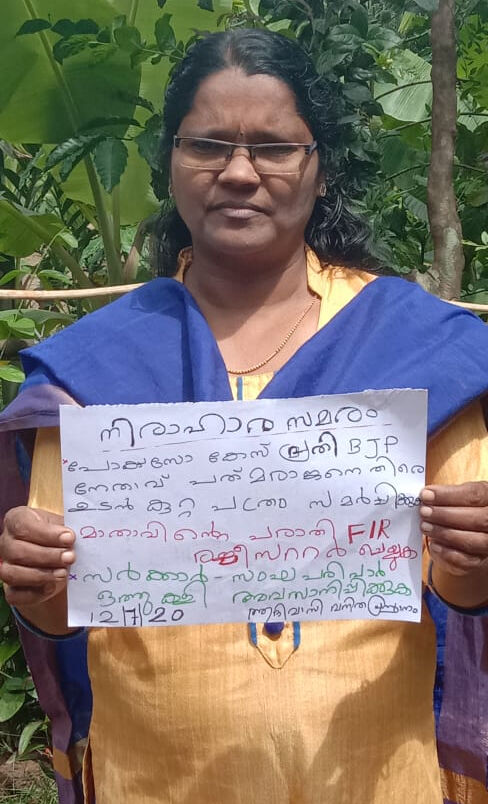 നിരാഹാര സമരം
പോക്സോ കേസ് പ്രതി BJP
നേതാവ് പത്മരാജനെതിരെ
ഉടൻ കുറ്റ പത്രം സമർപ്പിക്കുക
മാതാവിൻ്റെ പരാതി FIR
രജിസ്റ്റർ ചെയ്യുക
സർക്കാർ - സംഘപരിവാർ
ഒത്തുകളി അവസാനിപ്പിക്കുക
12/7/20 ആദിവാസി വനിത പ്രസ്ഥാനം